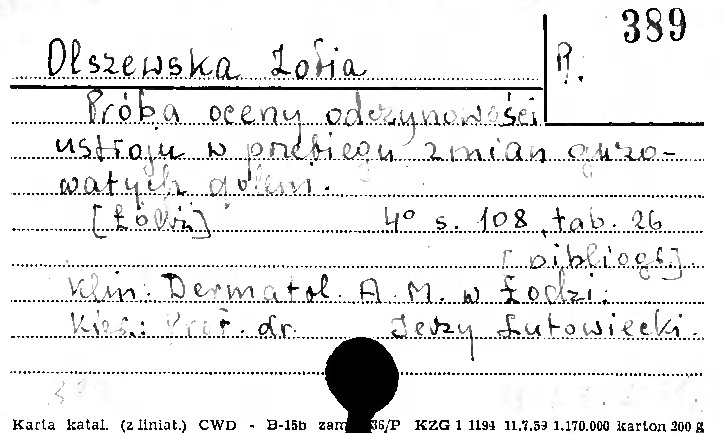 389
Olszewska Zofia R.
Próba oceny odczynowości
ustroju w przebiegu zmian guzo-
watych goleni.
[Łódź] 4° s. 108, tab. 26
[bibliogr.]
Klin. Dermatol. A. M. w Łodzi.
Kier.: Prof. dr. Jerzy Lutowiecki.
Karta katal. (z liniat.) CWD - B-15b zam 36/P KZG 1 1194 11.7.59 1.170.000 karton 200 g